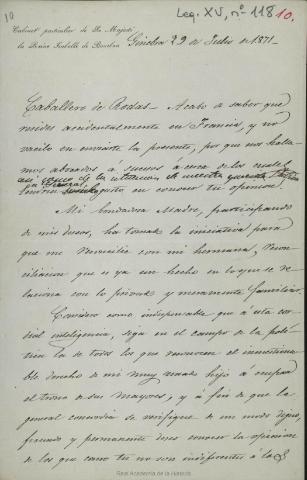 10
Leg. XV, nº 118 10.
Cabinet particulier de Sa Majesté
la Reine Isabelle de Bourbon
Ginebra 29 de Julio de 1871.
Caballero de Rodas = Acabo de saber que
resides accidentalmente en Francia, y no
vacilo en enviarte la presente, por que nos halla-
mos abocados á sucesos á cerca de los cuales
así como de la situacion de nuestra querida
en General, tengo en conocer tu opinion.
Mi bondadosa Madre, participando
de mis deseos, ha tomado la iniciativa para
que me reconcilie con mi hermana, recon-
ciliacion que es ya un hecho en lo que se re-
laciona con lo privado y meramente familiar.
Considero como indispensable que á esta cor-
dial inteligencia, siga en el campo de la polí-
tica la de todos los que reconocen el incuestiona-
ble derecho de mi muy amado hijo á ocupar
el trono de sus mayores, y á fin de que la
general concordia se verifique de un modo digno,
fecundo y permanente deseo conocer la opinion
de los que como tu no son indiferentes á la
Real Academia de la Historia